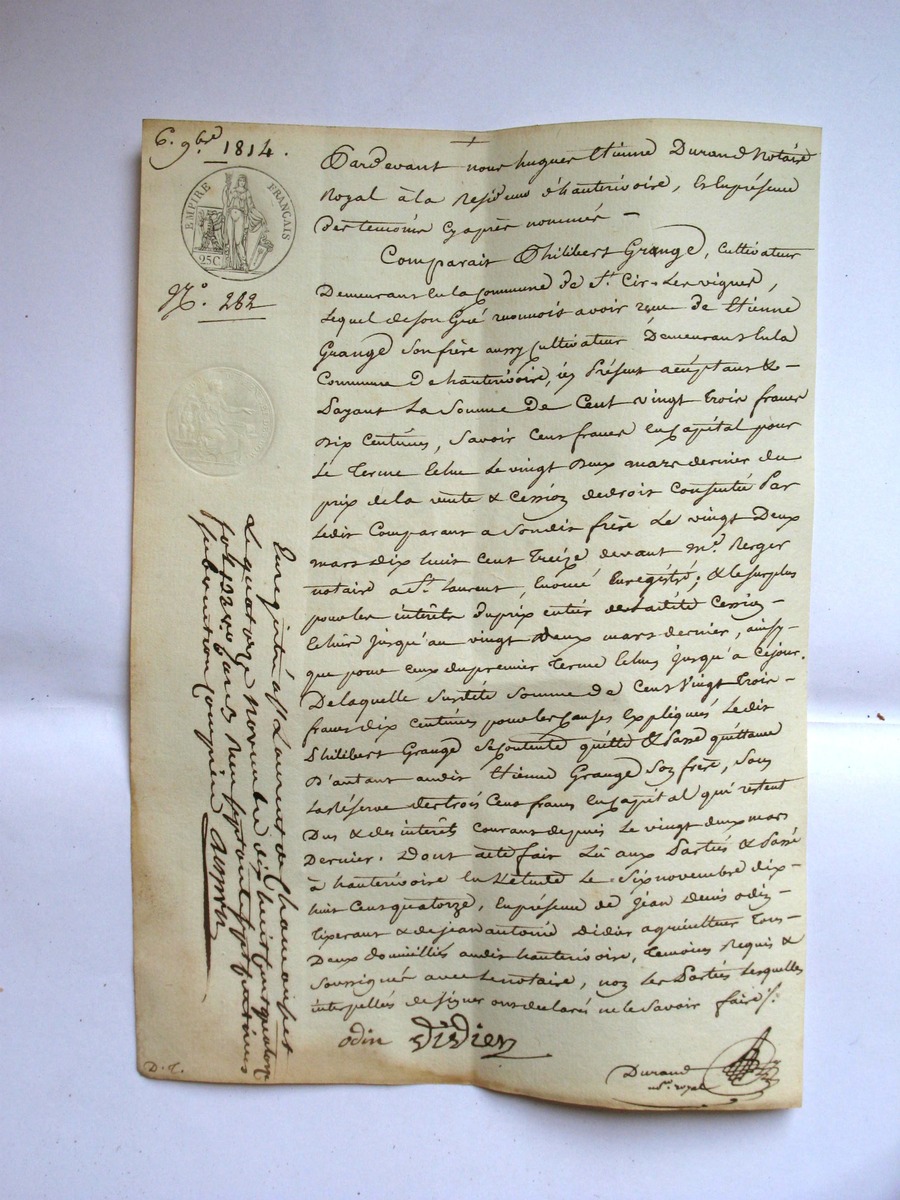 6. 9bre 1814.
EMPIRE FRANÇAIS
25C.
N.º 262
Pardevant nous hugues Etienne Durand Notaire
Royal à la Residence d'hauterivoire, & En présence
des temoins cy après nommés —
Comparait Philibert Grange, Cultivateur
Demeurant En la Commune de St. Cir = Les vignes,
Lequel de son Gré reconnois avoir reçu de Etienne
Grange son frère aussy Cultivateur Demeurant En la
Commune De hauterivoire, icy Présent acceptant & —
Payant La Somme De Cent vingt trois francs
Dix Centimes, Savoir Cent francs En Capital pour
Le Terme Echu Le vingt Deux mars dernier du
prix de la vente & Cession de droit Consentie Par
Ledit Comparant a Son dit frère Le vingt Deux
mars dix huit Cent Treize devant me. Berger
notaire a St. Laurent, Enregistré; & le surplus
pour les intérêts du prix entier de la dite Cession
Echus jusqu'au vingt Deux mars dernier, ainsy
que pour Ceux du premier Terme Echus jusqu'a Ce jour.
De laquelle Susdite Somme de Cent Vingt Trois —
francs dix Centimes pour les Causes Expliqués Ledit
Philibert Grange se Contente quitte & Passe quittance
D'autant audit Etienne Grange Son frère, Sous
La Réserve des trois Cent francs En Capital qui restent
Dus & des interêts Courant depuis Le vingt deux mars
Dernier. Dont acte fait Lû aux Parties & Passé
à hauterivoire En L'etude Le Six novembre dix —
huit Cent quatorze, En présence de jean denis odin
& de jean antoine Didier agriculteur Tous
Deux domicilliés audit hauterivoire, Temoins Requis &
Soussignés avec Le notaire, non les Parties Lesquelles
interpellés de signer ont déclaré ne le Savoir faire /.
odin Didier
Durand
nre. royal
Enregistré à St Laurent de Chamousset
Le quatorze novembre dix huit Cent quatorze
subvention Comprise
D. T.